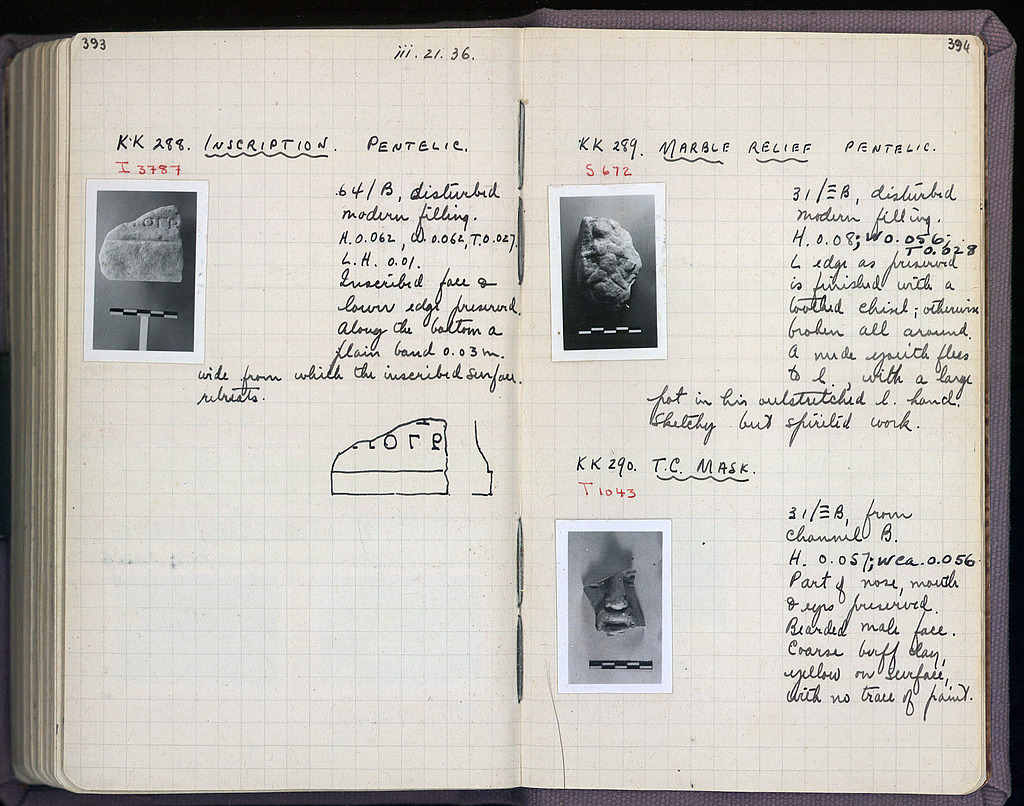 393
iii. 21. 36.
KK 288. INSCRIPTION. PENTELIC.
I 3787
64/B, disturbed
modern filling.
H. 0.062, W. 0.062, T. 0.027,
L.H. 0.01.
Inscribed face &
lower edge preserved.
Along the bottom a
plain band 0.03 m.
wide from which the inscribed surface
retreats.
394
KK 289. MARBLE RELIEF PENTELIC.
S 672
31/ΞB, disturbed
modern filling.
H. 0.08; W 0.056;
T 0.028
L edge as preserved
is finished with a
toothed chisel; otherwise
broken all around.
A nude youth flees
to l., with a large
pot in his outstretched l. hand.
Sketchy but spirited work.
KK 290. T.C. MASK.
T 1043
31/ΞB, from
channel B.
H. 0.057; W ca. 0.056
Part of nose, mouth
& eyes preserved.
Bearded male face.
Coarse buff clay,
yellow on surface,
with no trace of paint.